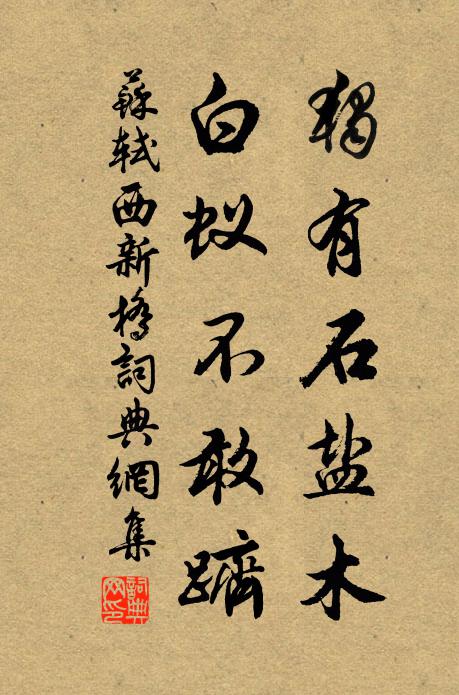 獨有石盐木
白蚁不敢躋
蘇軾西新橋詞典網集
詞典网印